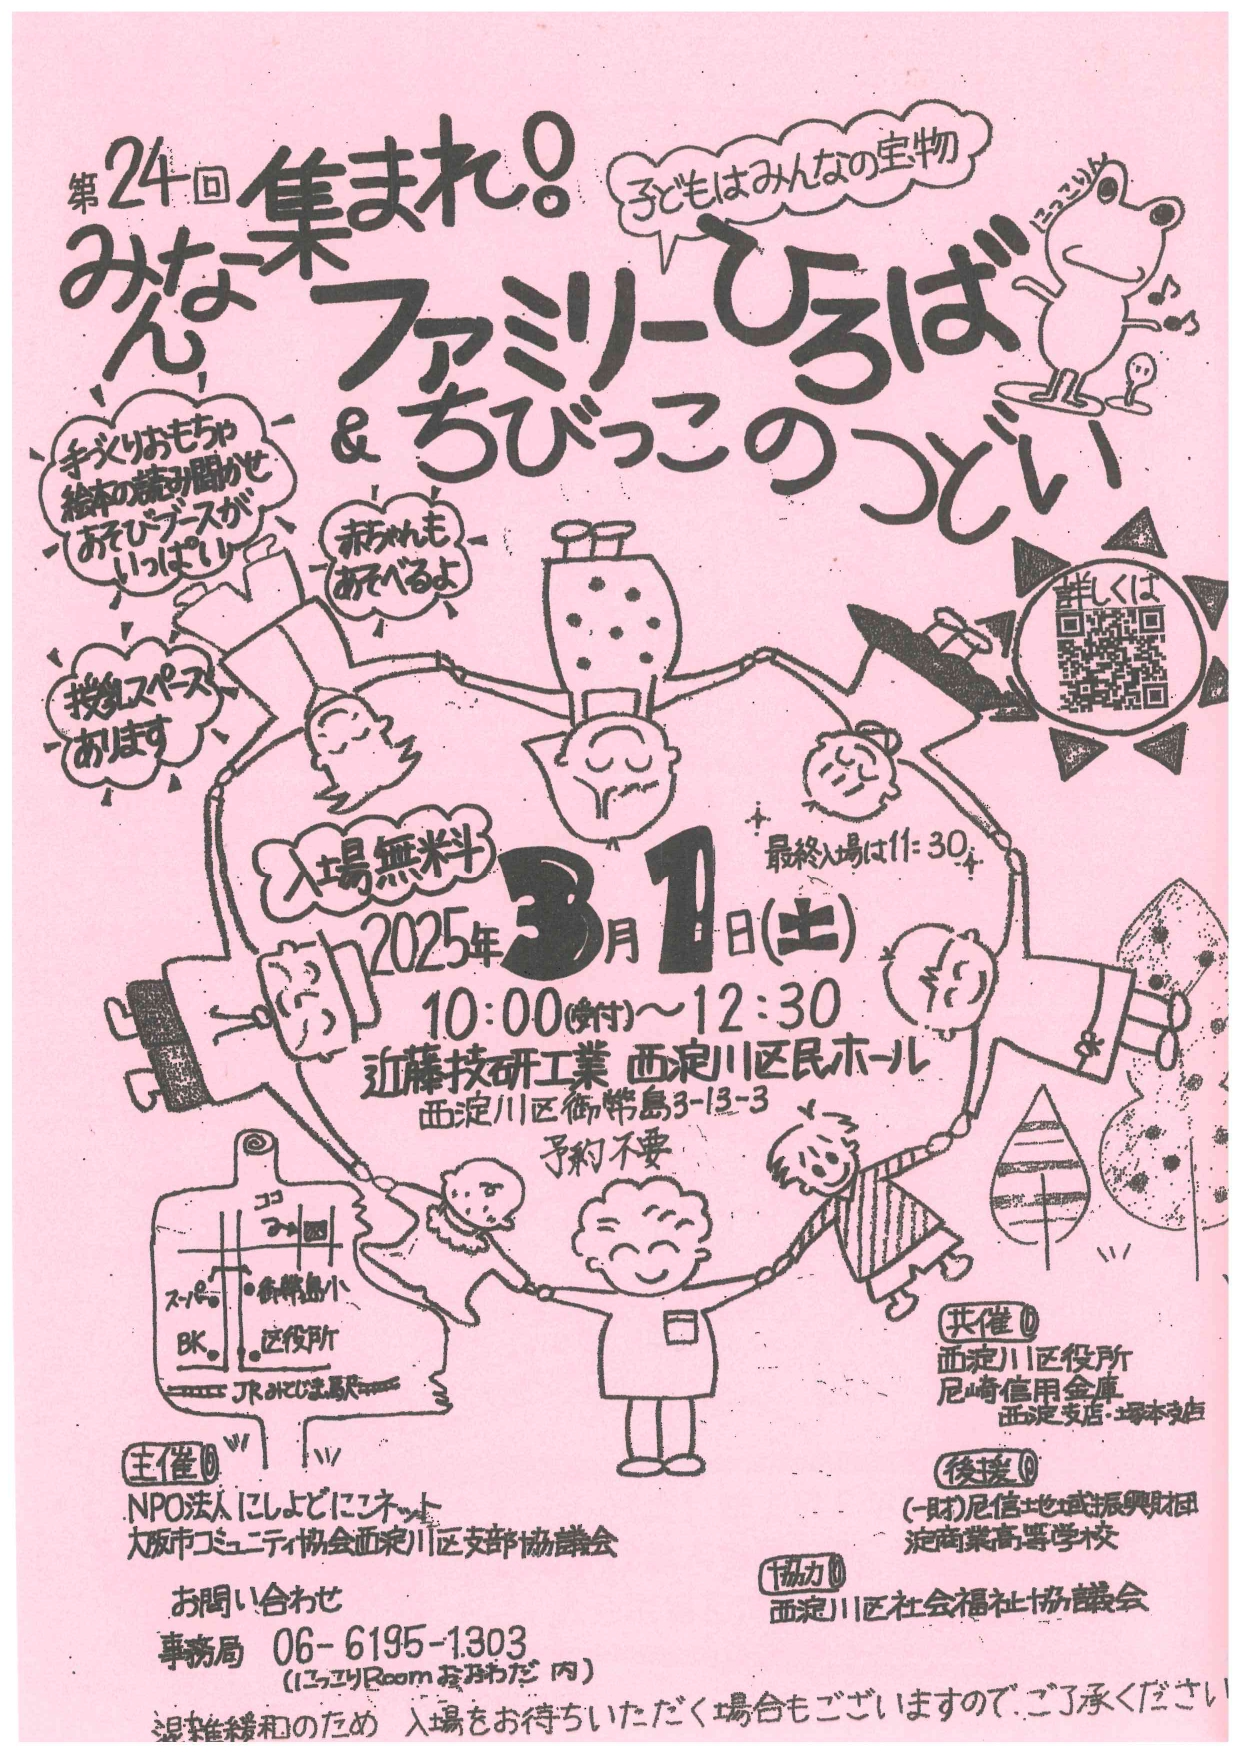 第24回
みんな集まれ!
子どもはみんなの宝物
にっこりん
ファミリーひろば
&ちびっこのつどい
手づくりおもちゃ
絵本の読み聞かせ
あそびブースが
いっぱい
赤ちゃんも
あそべるよ
授乳スペース
あります
詳しくは
入場無料
最終入場は11:30
2025年3月1日(土)
10:00(受付)~12:30
近藤技研工業 西淀川区民ホール
西淀川区御幣島3-13-3
予約不要
ココ
スーパー
御幣島小
BK
区役所
JRみてじま駅
共催
西淀川区役所
尼崎信用金庫
西淀支店・塚本支店
主催
NPO法人にしよどにこネット
大阪市コミュニティ協会西淀川区支部協議会
後援
(一財)尼信地域振興財団
淀商業高等学校
協力
西淀川区社会福祉協議会
お問い合わせ
事務局 06-6195-1303
(にっこりRoomおおわだ 内)
混雑緩和のため 入場をお待ちいただく場合もございますので、ご了承ください